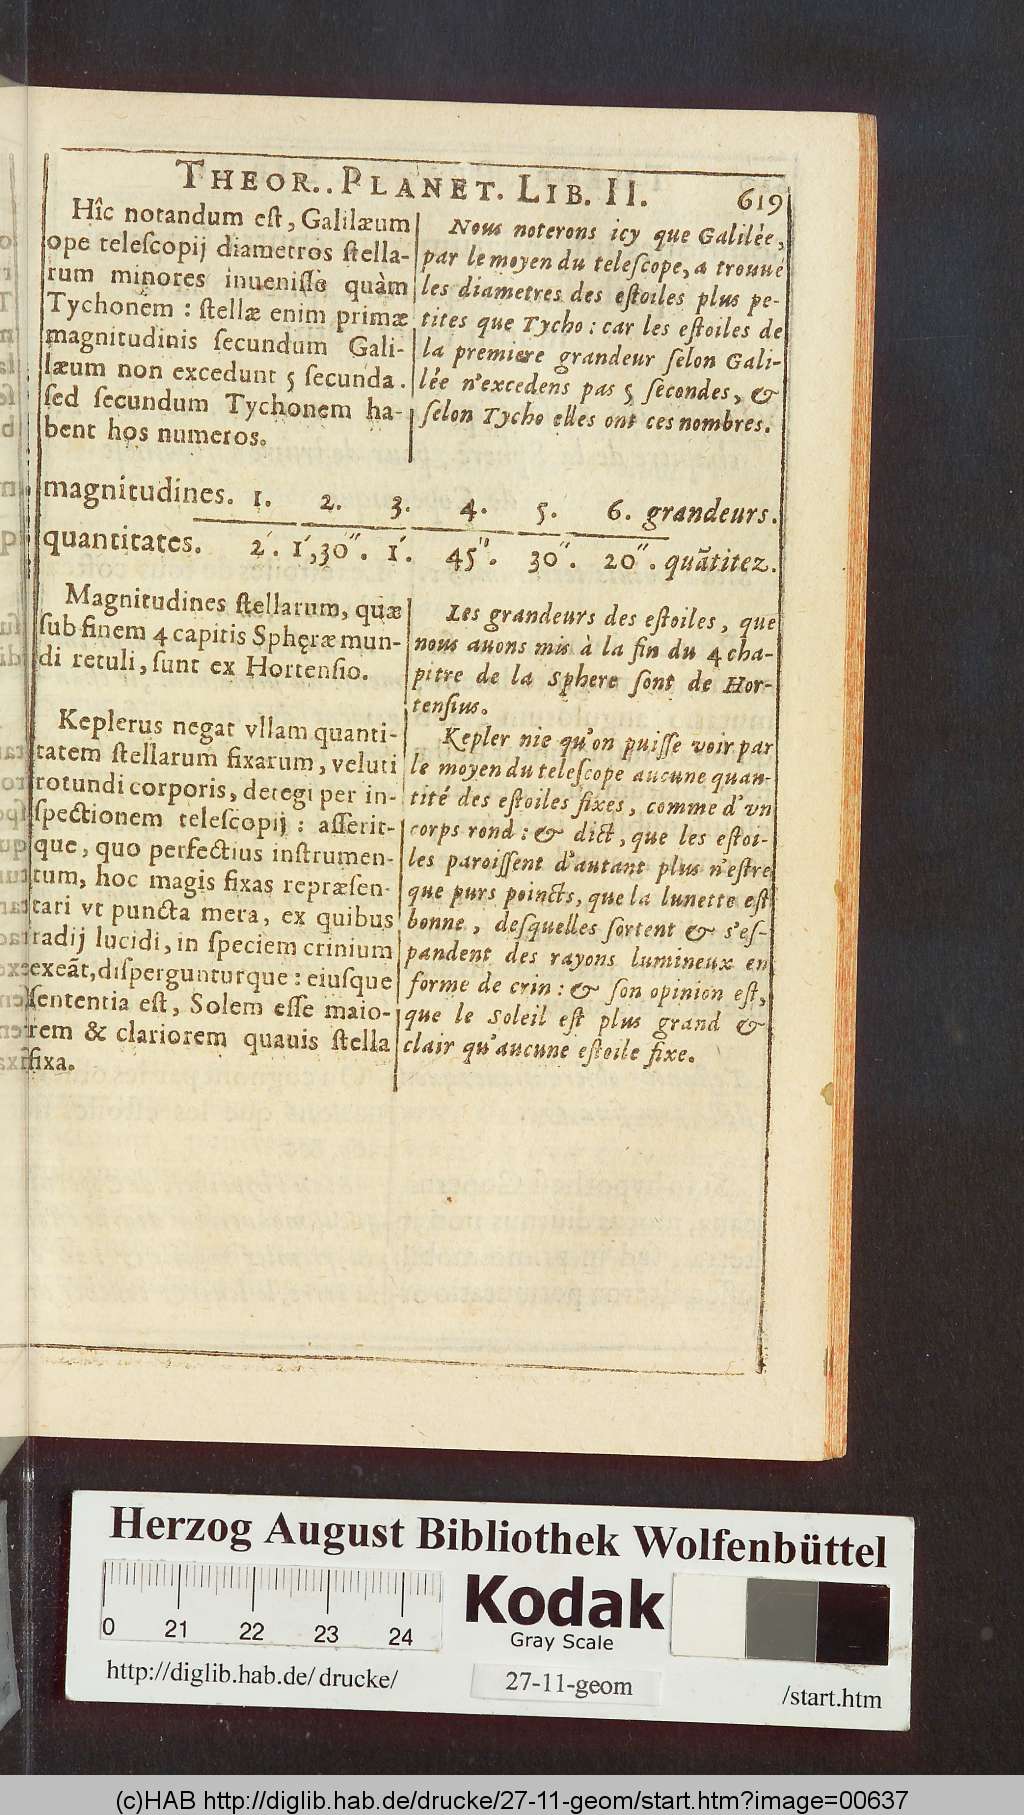 THEOR.. PLANET. LIB. II. 619
Hîc notandum eſt, Galilæum
ope teleſcopij diametros ſtella-
rum minores inueniſſe quàm
Tychonem : ſtellæ enim primæ
magnitudinis ſecundum Gali-
læum non excedunt 5 ſecunda.
ſed ſecundum Tychonem ha-
bent hos numeros.
Nous noterons icy que Galilée,
par le moyen du teleſcope, a trouué
les diametres des eſtoiles plus pe-
tites que Tycho : car les eſtoiles de
la premiere grandeur ſelon Gali-
lée n'excedens pas 5 ſecondes, &
ſelon Tycho elles ont ces nombres.
magnitudines. 1. 2. 3. 4. 5. 6. grandeurs.
quantitates. 2′. 1′,30″. 1′. 45″. 30″. 20″. quãtitez.
Magnitudines ſtellarum, quæ
ſub finem 4 capitis Sphęræ mun-
di retuli, ſunt ex Hortenſio.
Les grandeurs des eſtoiles, que
nous auons mis à la fin du 4 cha-
pitre de la Sphere ſont de Hor-
tenſius.
Keplerus negat vllam quanti-
tatem ſtellarum fixarum, veluti
rotundi corporis, detegi per in-
ſpectionem teleſcopij : aſſerit-
que, quo perfectius inſtrumen-
tum, hoc magis fixas repræſen-
tari vt puncta mera, ex quibus
radij lucidi, in ſpeciem crinium
exeãt, diſpergunturque : eiuſque
ſententia eſt, Solem eſſe maio-
rem & clariorem quauis ſtella
fixa.
Kepler nie qu'on puiſſe voir par
le moyen du teleſcope aucune quan-
tité des eſtoiles fixes, comme d'vn
corps rond : & dict, que les eſtoi-
les paroiſſent d'autant plus n'eſtre
que purs poincts, que la lunette eſt
bonne, deſquelles ſortent & s'eſ-
pandent des rayons lumineux en
forme de crin : & ſon opinion eſt,
que le Soleil eſt plus grand &
clair qu'aucune eſtoile fixe.
Herzog August Bibliothek Wolfenbüttel
0 21 22 23 24
Kodak
Gray Scale
http://diglib.hab.de/ drucke/
27-11-geom
/start.htm
(c)HAB http://diglib.hab.de/drucke/27-11-geom/start.htm?image=00637